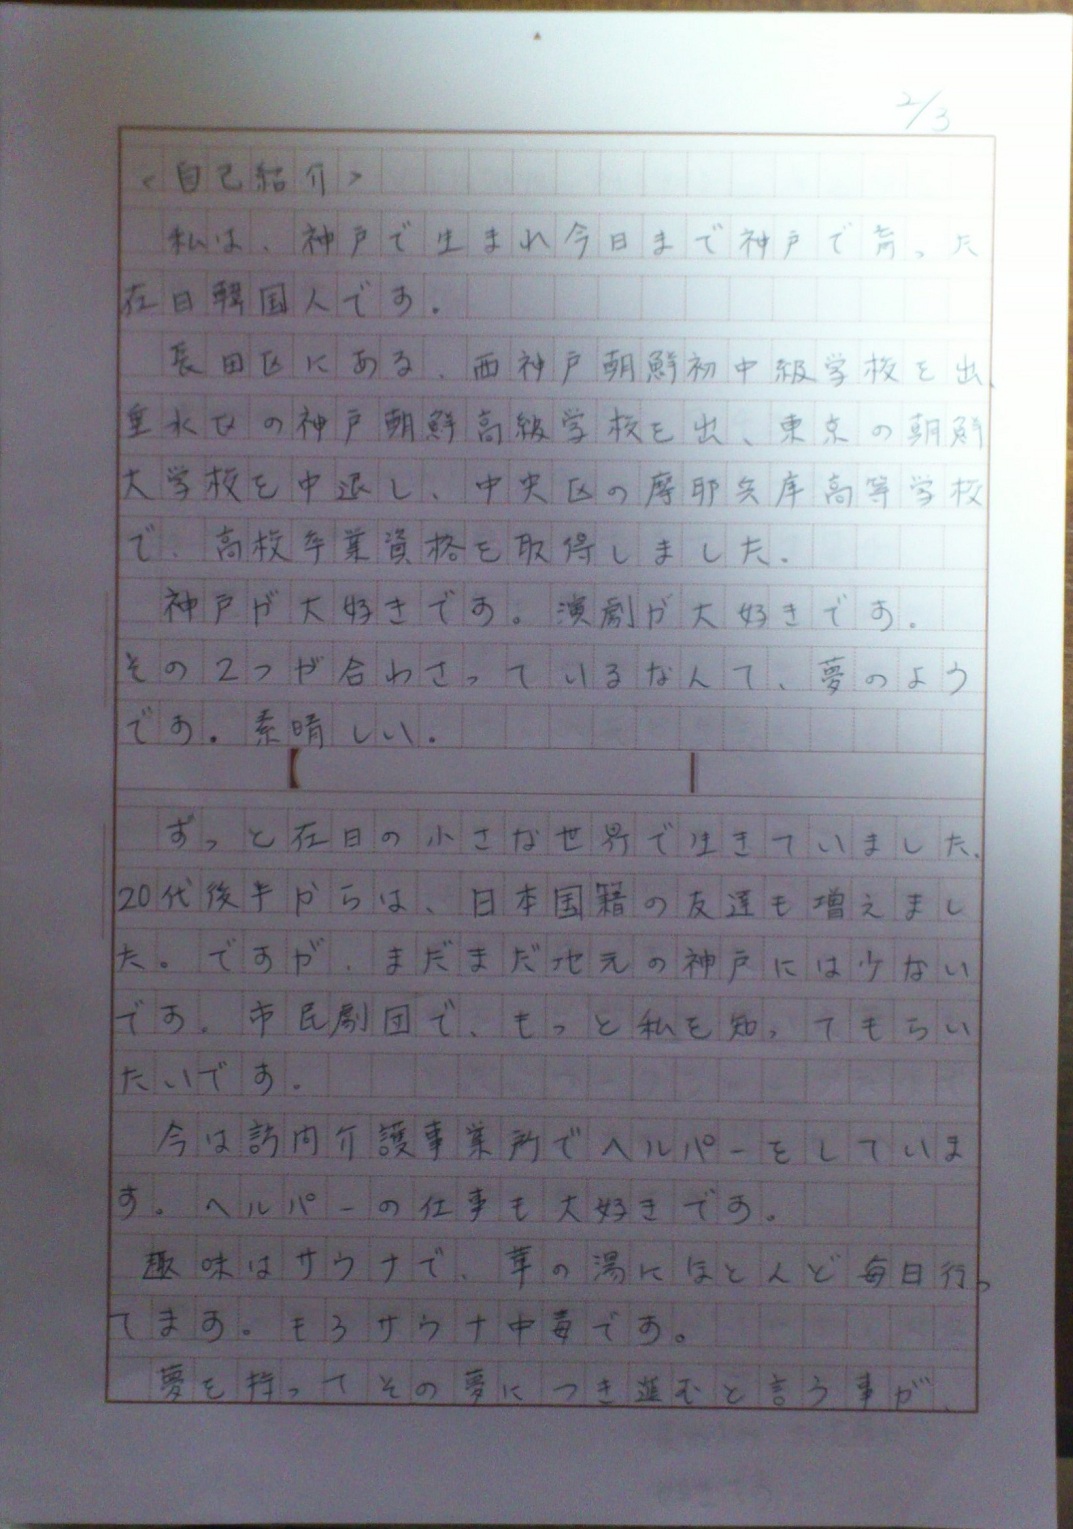 2/3
<自己紹介>
私は、神戸で生まれ今日まで神戸で育った
在日韓国人です。
長田区にある、西神戸朝鮮初中級学校を出、
垂水区の神戸朝鮮高級学校を出、東京の朝鮮
大学校を中退し、中央区の摩耶兵庫高等学校
で、高校卒業資格を取得しました。
神戸が大好きです。演劇が大好きです。
その2つが合わさっているなんて、夢のよう
です。素晴しい。
ずっと在日の小さな世界で生きていました。
20代後半からは、日本国籍の友達も増えまし
た。ですが、まだまだ地元の神戸には少ない
です。市民劇団で、もっと私を知ってもらい
たいです。
今は訪問介護事業所でヘルパーをしていま
す。ヘルパーの仕事も大好きです。
趣味はサウナで、華の湯にほとんど毎日行っ
てます。もろサウナ中毒です。
夢を持ってその夢につき進むと言う事が、